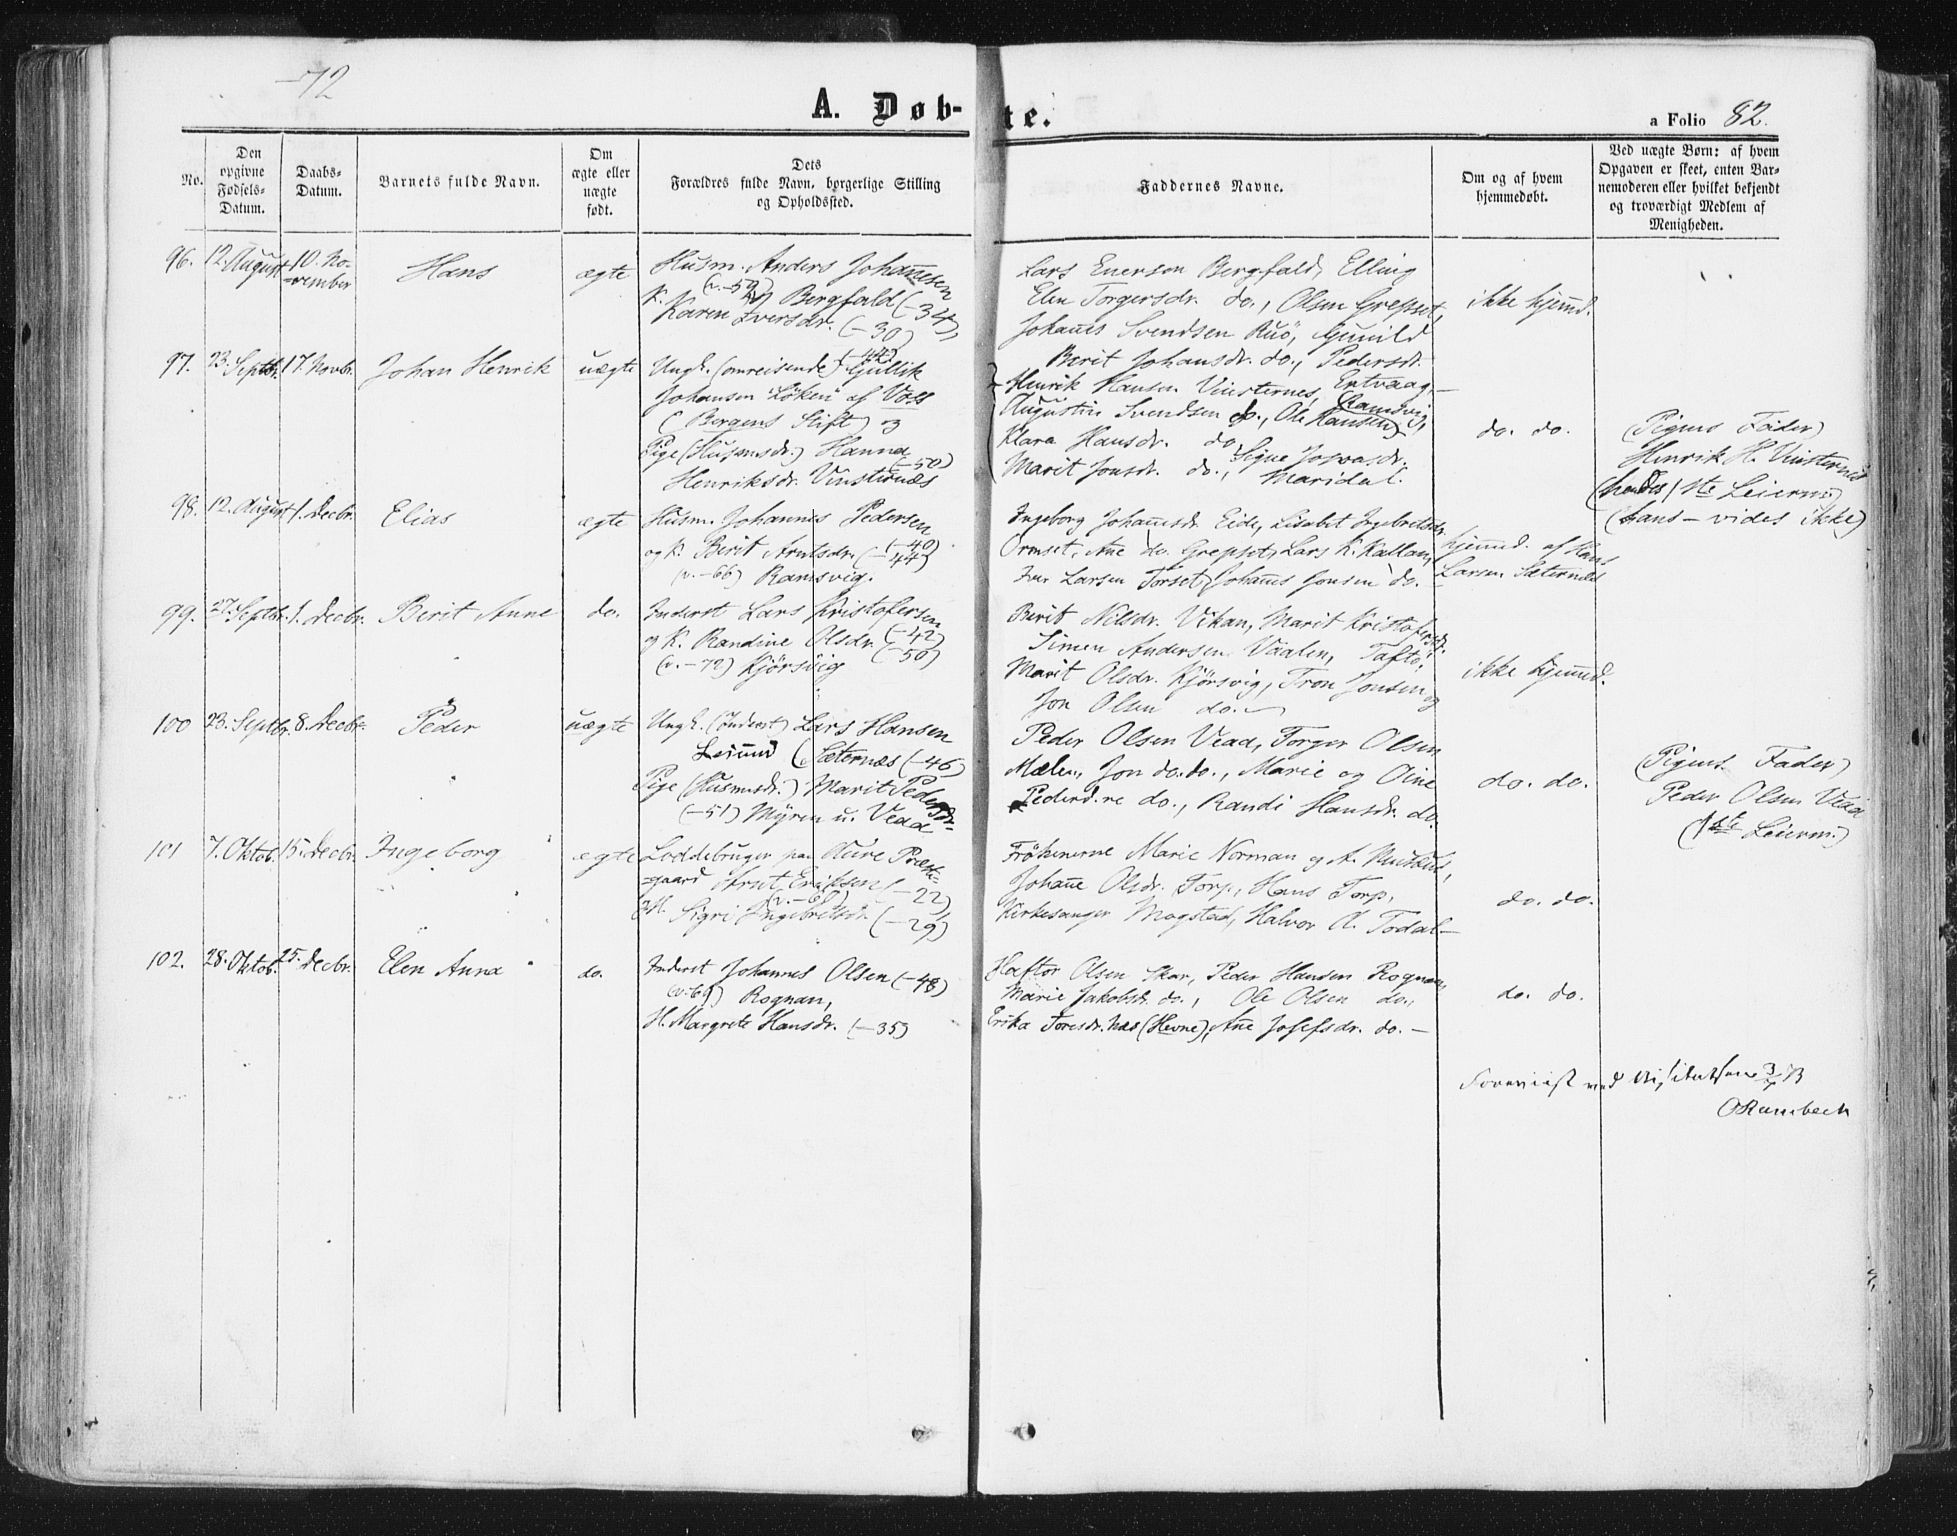 -72
A. Døb-
te.
a Folio 82.
No.
Den
opgivne
Fødsels-
Datum.
Daabs-
Datum.
Barnets fulde Navn.
Om
ægte eller
uægte
født.
Dets
Forældres fulde Navn, borgerlige Stilling
og Opholdssted.
Faddernes Navne.
Om og af hvem
hjemmedøbt.
Ved uægte Børn: af hvem
Opgaven er skeet, enten Bar-
nemoderen eller hvilket bekjendt
og troværdigt Medlem af
Menigheden.
96. 12. August 10. No-
vember
Hans
ægte
Husm. Anders Johannesen
(v. -59) Bergfald (-34)
K. Karen Iversdr. (-30)
Lars Enersen Bergfald, Elling
Elen Torgersdr. do., Olsen Grepset,
Johannes Svendsen Ruö, Gunild
Berit Johansdr. do., Pedersdr.
ikke hjemmd.
97. 23. Septbr. 17. Novbr.
Johan Henrik
uægte
Ungk. (omreisende) (-44) Gullik
Johansen "Löken" af Voss
(Bergens Stift) og
Pige (Husmsdr.) Hanna (-50)
Henriksdr. Vinsternæs
Henrik Hansen Vinsternes, Ertvaag,
Augustin Svendsen do., Ole Hansen Ramsvig,
Klara Hansdr. do., Signe Josvasdr.
Marit Jonsdr. do., Maridal.
do. do.
(Pigens Fader)
Henrik H. Vinsternæs
(hendes 1ste Leierm.)
(hans - vides ikke)
98. 12. August 1. Decbr.
Elias
ægte
Husm. Johannes Pedersen (-40)
og K. Berit Arntsdr. (-44)
(v. -66) Ramsvig.
Ingeborg Johannesdr. Eide, Lisabet Ingebretsdr.
Ormset, Ane do. Grepset, Lars K. Kallan,
Iver Larsen Torset, Johannes Jonsen do.
hjemmd. af Hans
Larsen Sæternes
99. 27. Septbr. 1. Decbr.
Berit Anne
do.
Inderst Lars Kristofersen (-42)
og K. Randine Olsdr. (-50)
(v. -72) Kjörsvig
Berit Nilsdr. Vikan, Marit Kristofersdr.
Simen Andersen Vaalen, Taftö,
Marit Olsdr. Kjörsvig, Tron Jonsen og
Jon Olsen do.
ikke hjemmd.
100 23. Septbr. 8. Decbr.
Peder
uægte
Ungk. (Inderst) Lars Hansen
Leiund (Sæternæs (-46)
Pige (Husmsdr.) Marit Pedersdr.
(-51) Myren u. Vead
Peder Olsen Vead, Torger Olsen
Mælen, Jon do. do., Marie og Oine
Pedersd.re do., Randi Hansdr. do.
do. do.
(Pigens Fader)
Peder Olsen Vead
(1ste Leierm.)
101 7. Oktob. 15. Decbr.
Ingeborg
ægte
Loddebruger paa Aure Præste-
gaard Arnt Eriksen (-22)
(v. -6)
H. Sigri Ingebretsdr. (-29)
Frökenerne Marie Norman og A.
Johanne Olsdr. Torp, Hans Torp,
Kirkesanger Mogstad, Halvor O. Todal-
do. do.
102. 28. Oktob. 25. Decbr.
Elen Anna
do.
Inderst Johannes Olsen (-48)
(v. 69) Rognan,
H. Margrete Hansdr. (-35)
Haftor Olsen Skar, Peder Hansen Rognan,
Marie Jakobsdr. do., Ole Olsen do.,
Erika Toresdr. Næs (Hevne), Ane Josefsdr. do. -
do. do.
Forevist ved Visitatsen 3/7 73